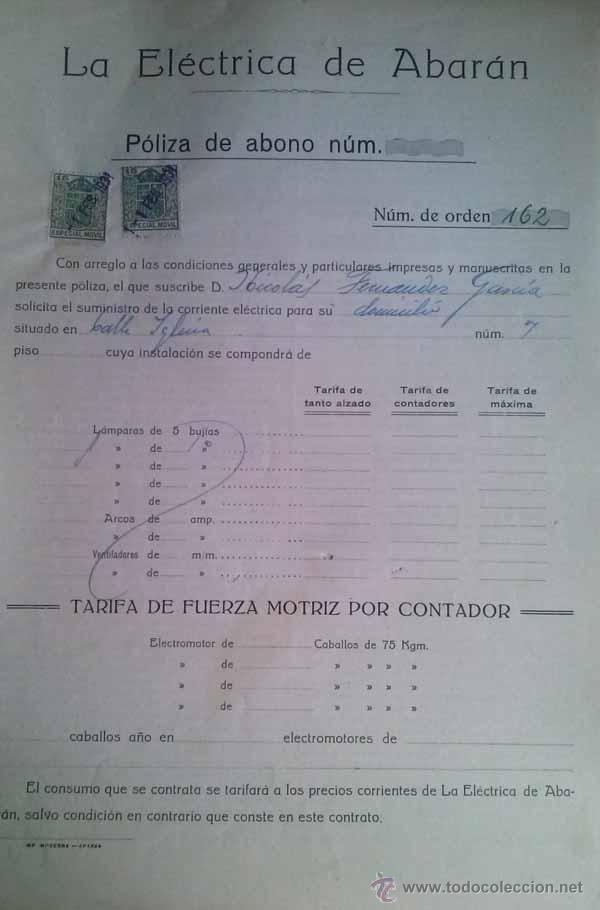 La Eléctrica de Abarán
Póliza de abono núm.
Núm. de orden 162
ESPECIAL MOVIL
ESPECIAL MOVIL
Con arreglo a las condiciones generales y particulares impresas y manuscritas en la
presente póliza, el que suscribe D. Nicolas Fernandez García
solicita el suministro de la corriente eléctrica para su domicilio
situado en Calle Iglesia núm. 7
piso cuya instalación se compondrá de
Tarifa de tanto alzado Tarifa de contadores Tarifa de máxima
Lámparas de 5 bujías
» de »
» de »
» de »
» de »
Arcos de amp.
» de »
Ventiladores de m/m.
» de »
TARIFA DE FUERZA MOTRIZ POR CONTADOR
Electromotor de Caballos de 75 Kgm.
» de » » » »
» de » » » »
» de » » » »
caballos año en electromotores de
El consumo que se contrata se tarifará a los precios corrientes de La Eléctrica de Aba-
rán, salvo condición en contrario que conste en este contrato.
www.todocoleccion.net